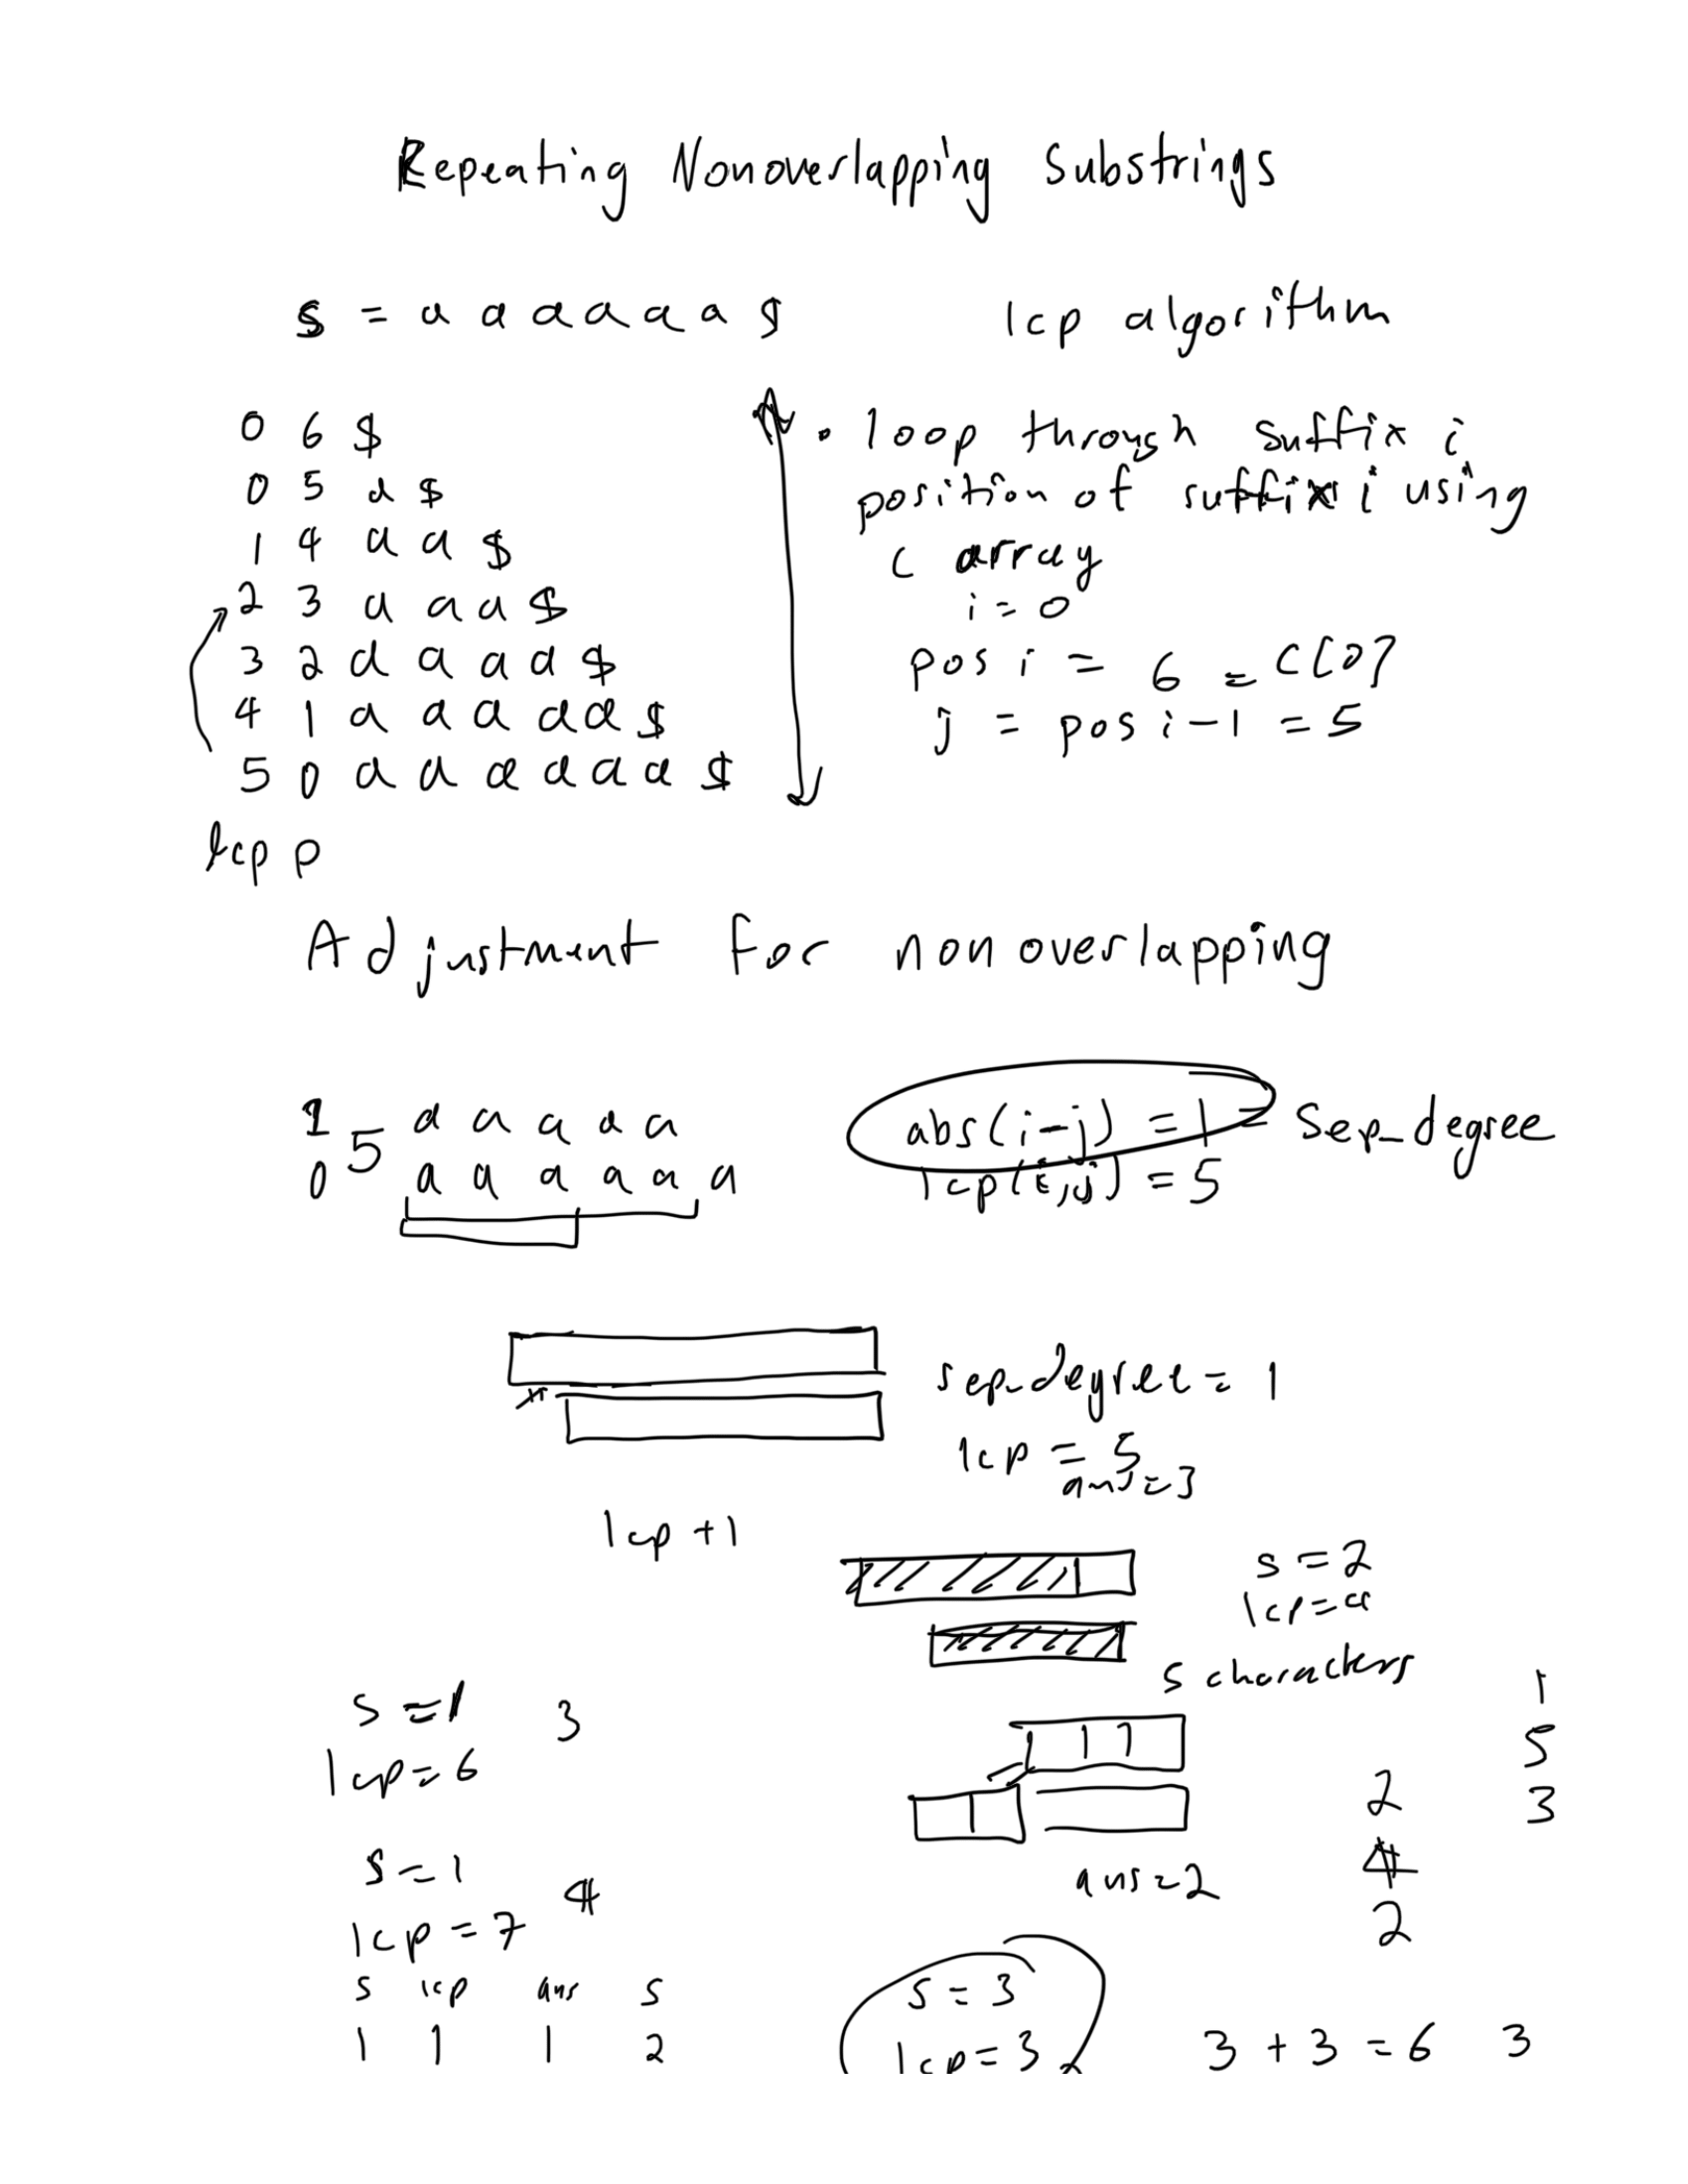 Repeating Nonoverlapping Substrings
s = a a a a a a $
lcp algorithm
0 6 $
0 5 a $
1 4 a a $
2 3 a a a $
3 2 a a a a $
4 1 a a a a a $
5 0 a a a a a a $
lcp p
• loop through suffix i
position of suffix i using
c array
i = 0
pos i = 6 = c[0]
j = pos i - 1 = 5
Adjustment for nonoverlapping
1 5 a a a a a
0 a a a a a a
abs(i-j) = 1 = sep_degree
lcp(i,j) = 5
sep_degree = 1
lcp = 5
ans = 3
lcp + 1
s = 2
lcp = 4
5 characters
s = 1 3
lcp = 6
1
5
3
2
4
2
ans = 2
s = 1 4
lcp = 7
s lcp ans s
1 1 1 2
s = 3
lcp = 3
3 + 3 = 6 3